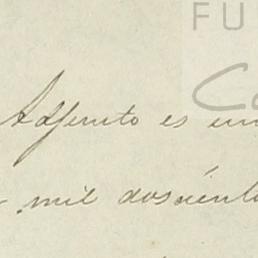 FU
Adjunto es un
mil doscient